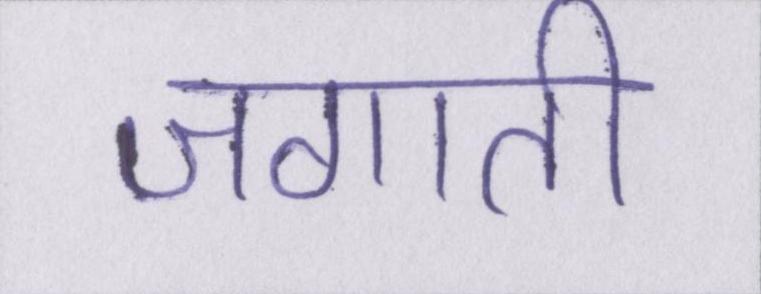 जगाती